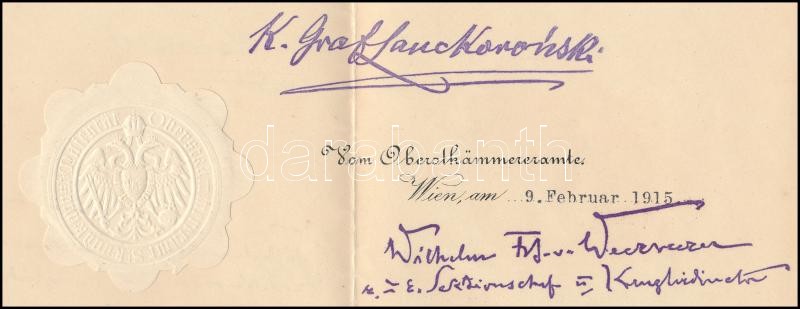 K. Graf Lanckoroński
Vom Oberstkämmereramte.
Wien, am 9. Februar 1915
Wilhelm Frh. v. Weckbecker
k. u. k. Sektionschef u. Kanzleidirektor
darabanth